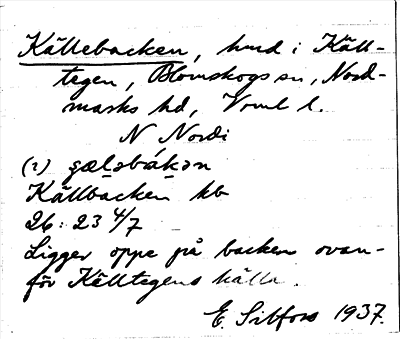 Källebacken, hmd i Käll-
tegen, Blomskogs sn, Nord-
marks hd, Vrml l.
N Nordi
(1) çæl₂bákən
Källbacken kb
26: 23 4/7
Ligger oppe på backen ovan-
för Källtegens källa.
E. Sibfors 1937.